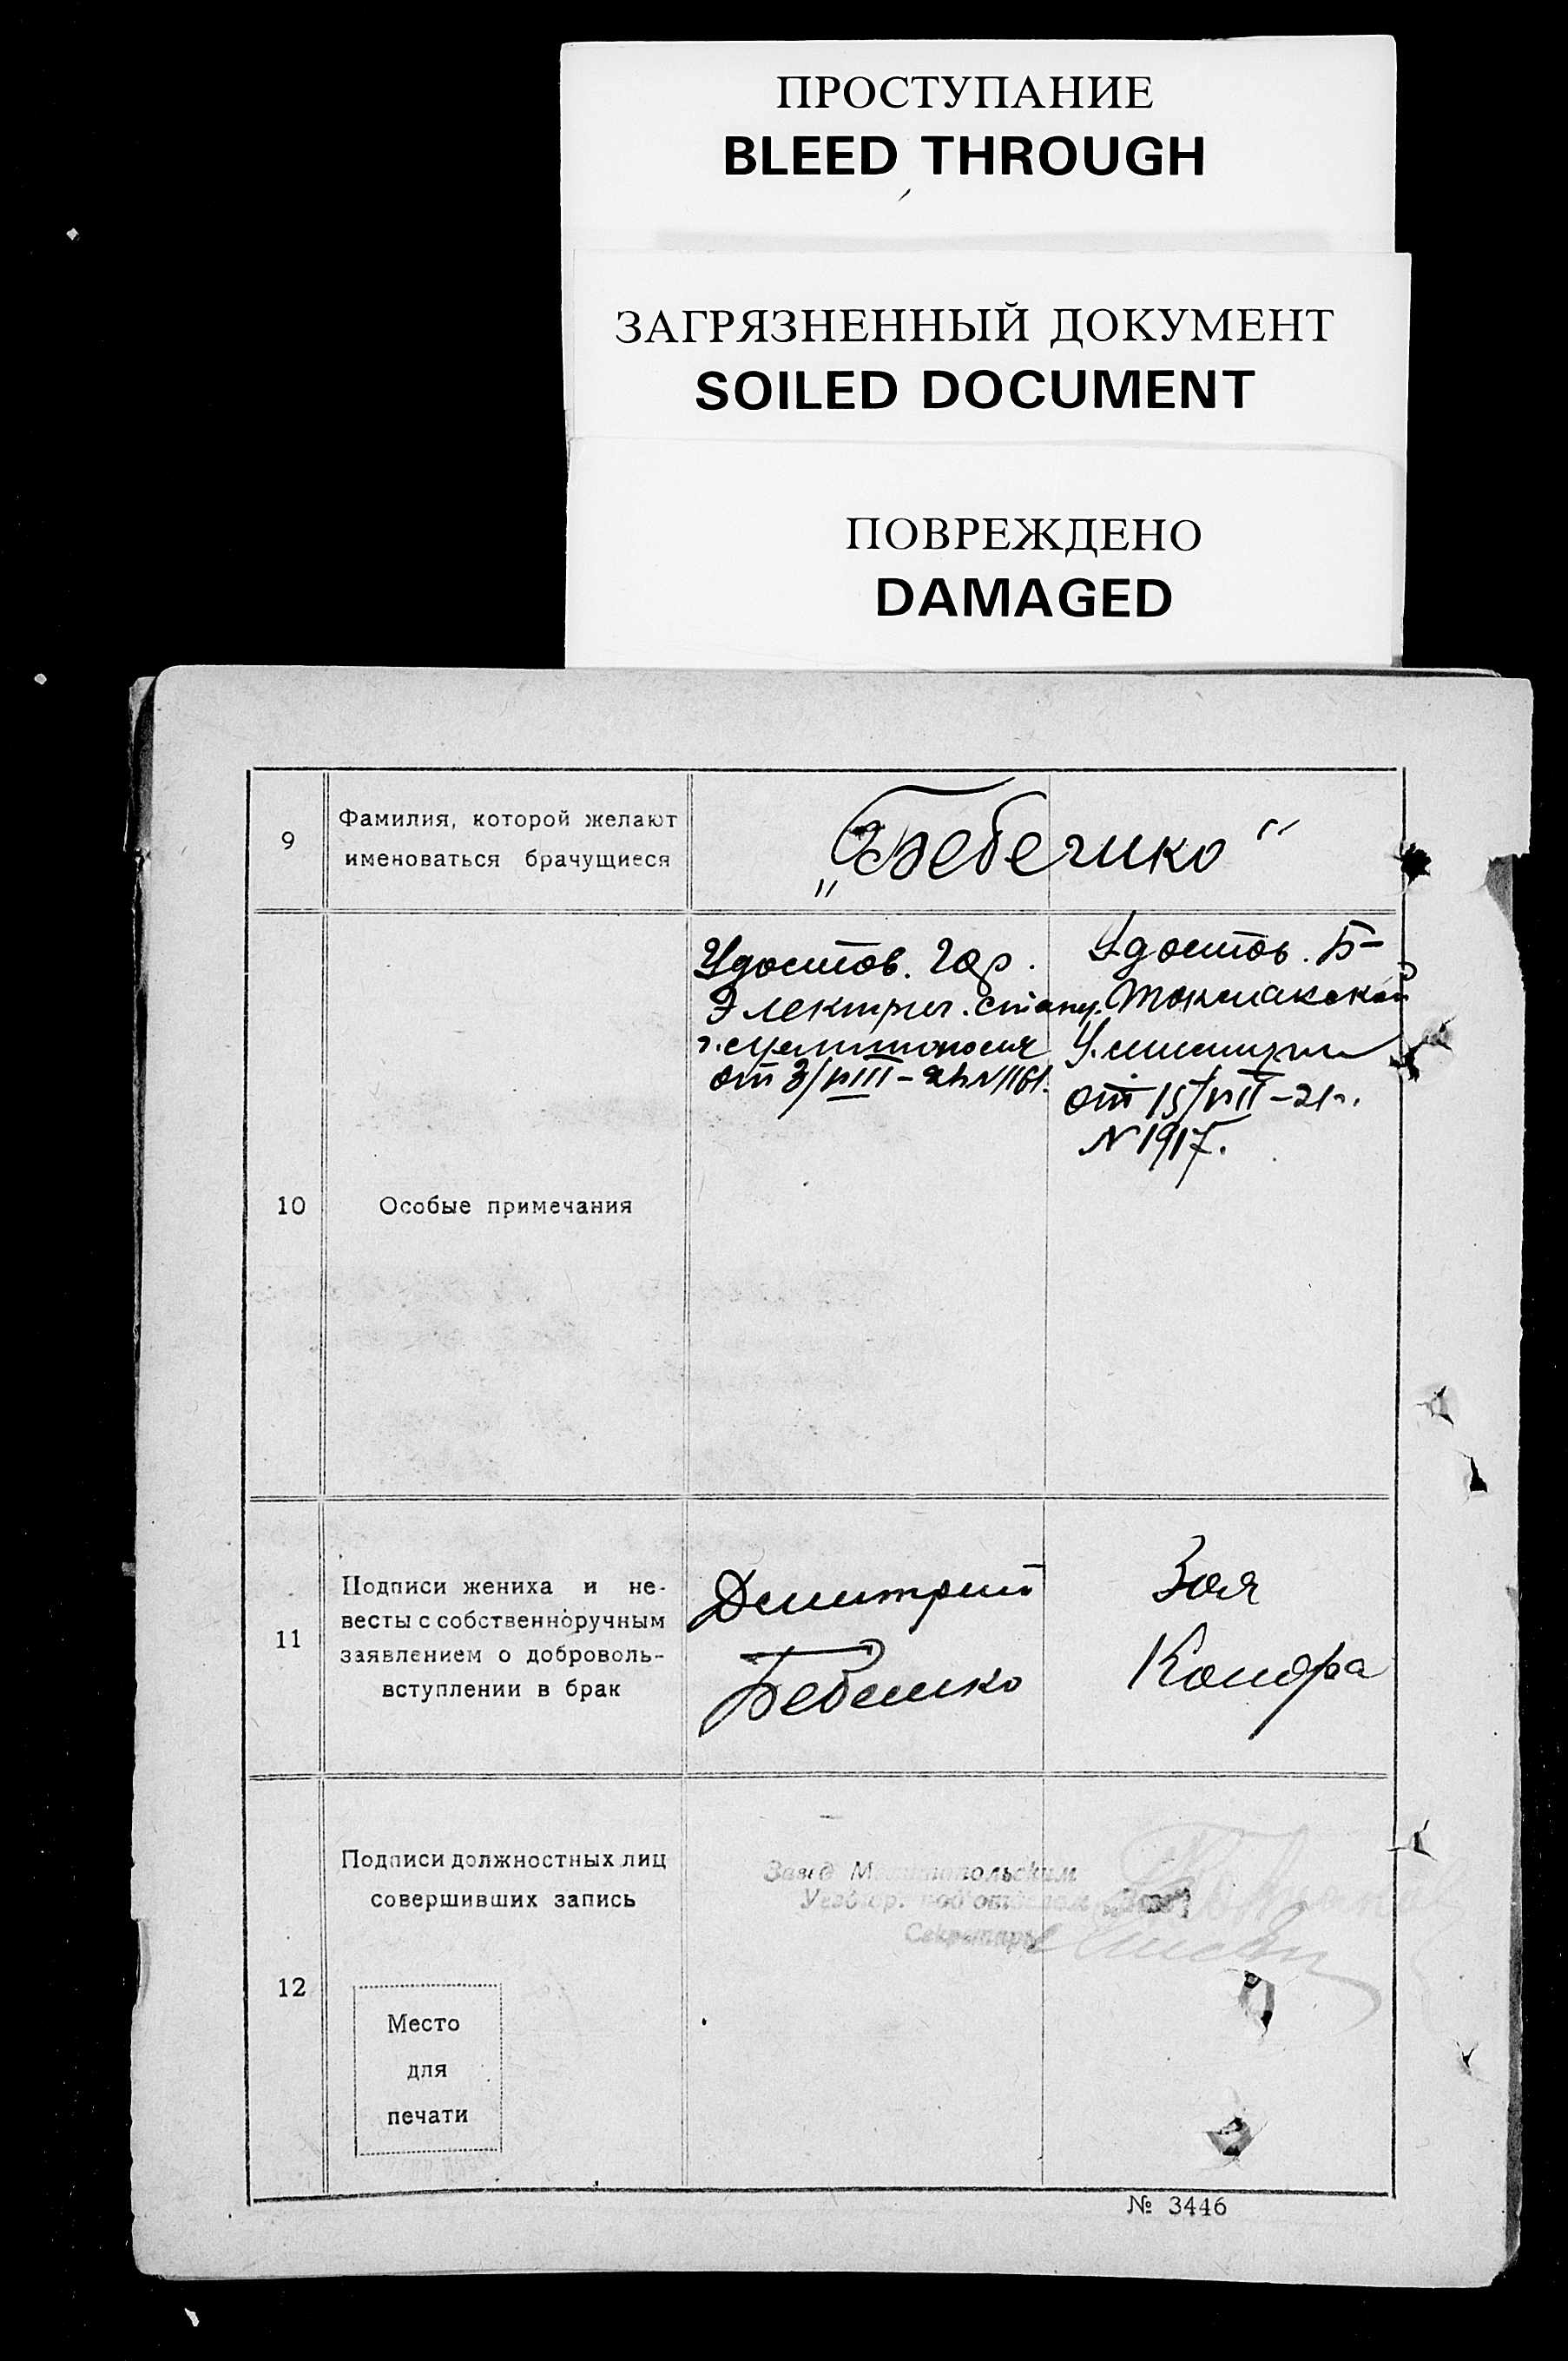 ПРОСТУПАНИЕ
BLEED THROUGH
ЗАГРЯЗНЕННЫЙ ДОКУМЕНТ
SOILED DOCUMENT
ПОВРЕЖДЕНО
DAMAGED
9
Фамилия, которой желают
именоваться брачущиеся
„Бебешко“
10
Особые примечания
Удостов. Гор.
Электрич. станц.
г. Мелитополя
от 3/VIII – 21г. № 1161.
Удостов. Б-
Токмакской
У. милиции
от 15/VII – 21г.
N 1917.
11
Подписи жениха и не-
весты с собственноручным
заявлением о доброволь-
вступлении в брак
Дмитрий
Бебешко
Зоя
12
Подписи должностных лиц
совершивших запись
Завед Мелитопольским
Секретарь
Место
для
печати
№ 3446